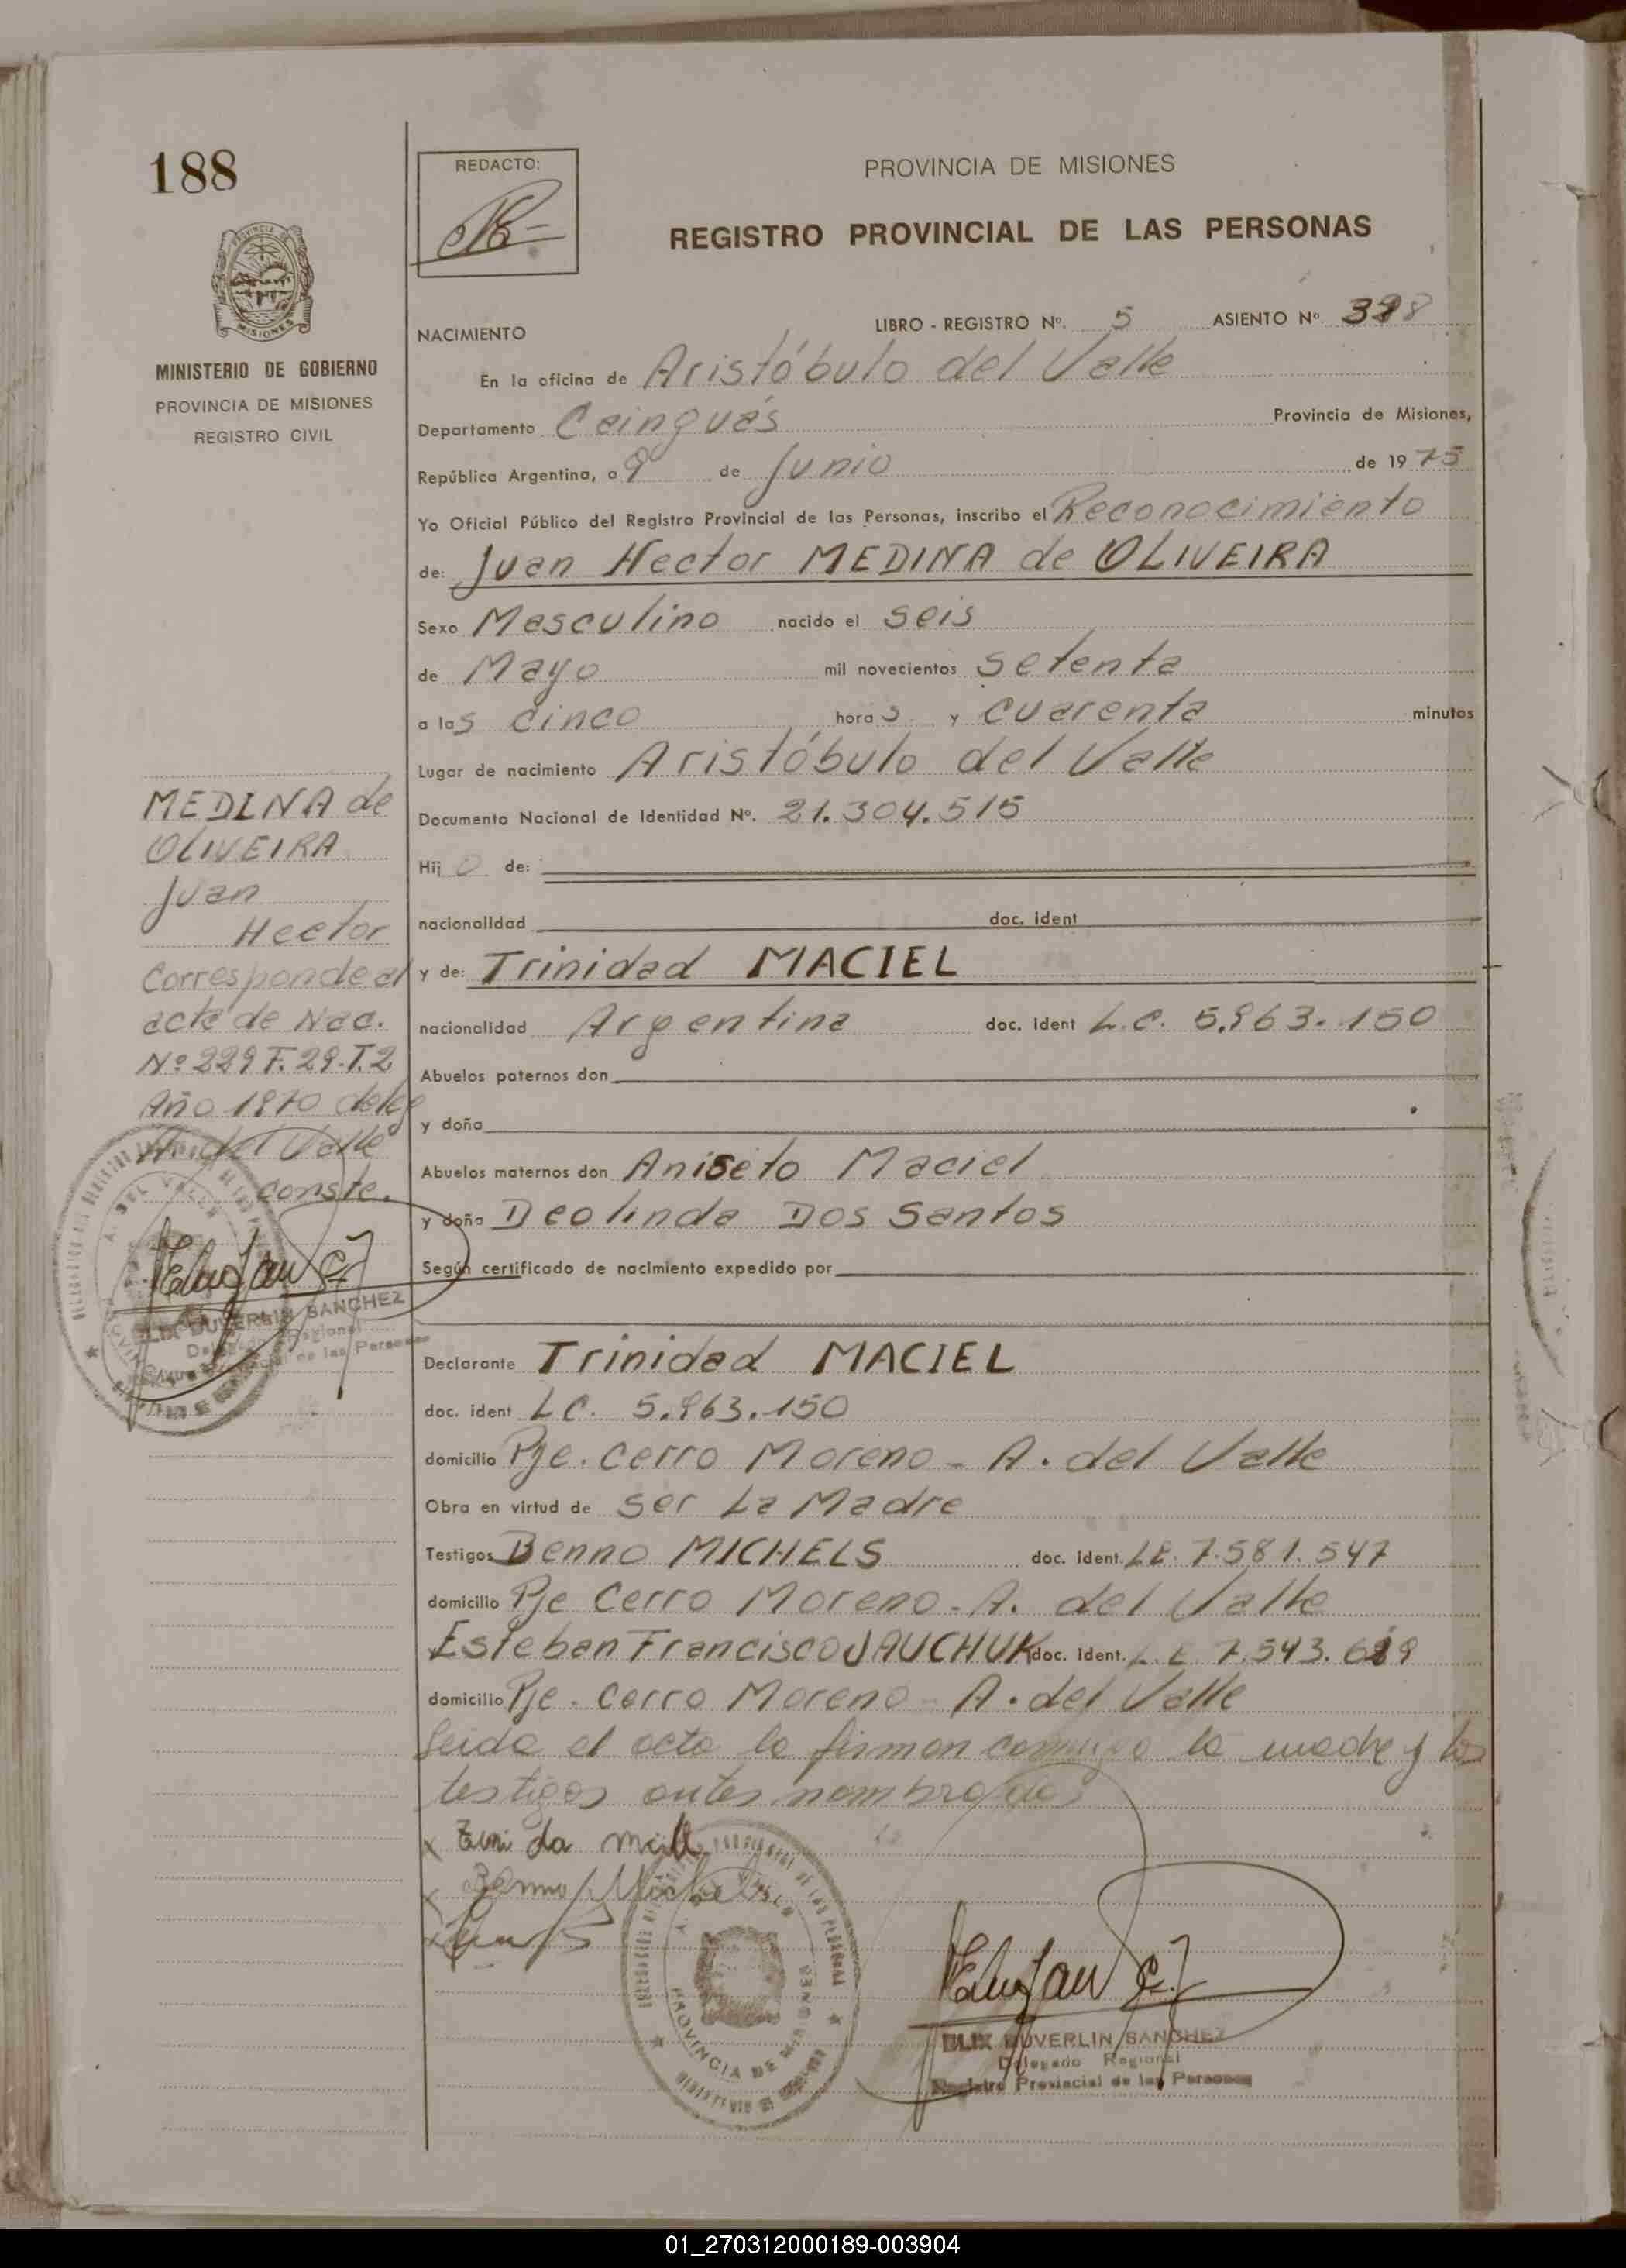 188
REDACTO:
PROVINCIA DE MISIONES
REGISTRO PROVINCIAL DE LAS PERSONAS
MISIONES
MINISTERIO DE GOBIERNO
PROVINCIA DE MISIONES
REGISTRO CIVIL
NACIMIENTO
LIBRO - REGISTRO Nº. 5 ASIENTO Nº
En la oficina de Aristóbulo del Valle
Departamento Cainguás Provincia de Misiones,
República Argentina, a 9 de Junio de 1975
Yo Oficial Público del Registro Provincial de las Personas, inscribo el Reconocimiento
de: Juan Hector MEDINA de OLIVEIRA
Sexo Masculino nacido el seis
de Mayo mil novecientos setenta
a las cinco horas y cuarenta minutos
Lugar de nacimiento Aristóbulo del Valle
Documento Nacional de Identidad Nº. 21.304.515
Hijo de:
nacionalidad doc. ident
y de: Trinidad MACIEL
nacionalidad Argentina doc. ident L.C. 5.963.150
Abuelos paternos don
y doña
Abuelos maternos don Aniseto Maciel
y doña Deolinda Dos Santos
Según certificado de nacimiento expedido por
Declarante Trinidad MACIEL
doc. ident L.C. 5.963.150
domicilio Pje. Cerro Moreno - A. del Valle
Obra en virtud de ser La Madre
Testigos Benno MICHELS doc. ident. L.E. 7.581.547
domicilio Pje Cerro Moreno - A. del Valle
Esteban Francisco JAUCHUK doc. ident. L.E 7.543.
domicilio Pje. Cerro Moreno - A. del Valle
Leida el acta la firman conmigo la madre y los
testigos antes nombrados
MEDINA de
OLIVEIRA
Juan
Hector
Corresponde al
acta de Nac.
Nº 229 F. 29. T. 2
Año 1970 de
A. del Valle
conste.
ELIX DUVERLIN SANCHEZ
Delegado Regional
Registro Provincial de las Personas
Benno Michels
PROVINCIA DE MISIONES
ELIX DUVERLIN SANCHEZ
Delegado Regional
Registro Provincial de las Personas
01_270312000189-003904